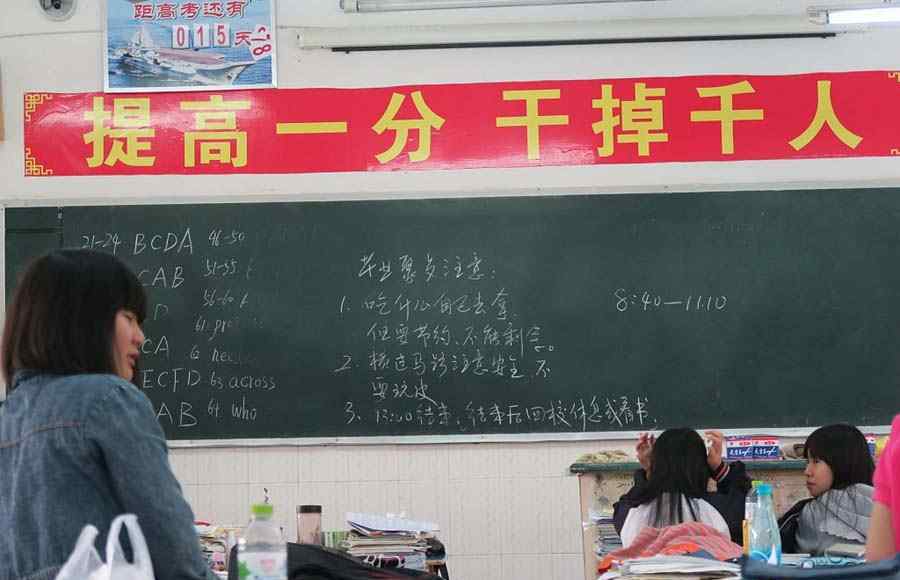 距高考还有
015天
提高一分 干掉千人
21-24 BCDA 46-50
CAB 51-55
D 56-60
61.
CA
ECFD 63 across
AB 64. who
毕业聚步注意:
1. 吃什么自己去拿
但要节约、不能剩
2. 横过马路注意安全 不
要玩皮
3. 13:00结束,结束后回校休息或看书.
8:40—11.10